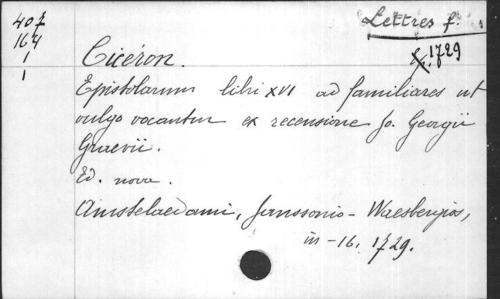 407
164
1
1
Lettres f.
f. 1729
Cicéron.
Epistolarum libri XVI ad familiares ut
vulgo vocantur ex recensione Jo. Georgii
Graevii.
Ed. nova.
Amstelaedami, Janssonio-Waesbergios,
in-16. 1729.